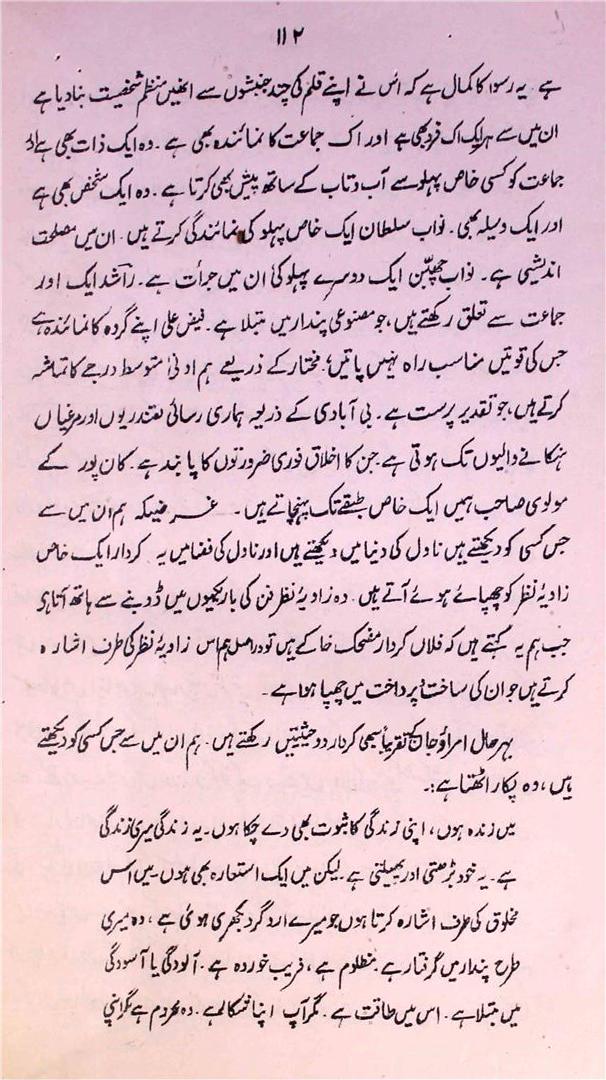 ۱۱۲
ہے۔ یہ رسوا کا کمال ہے کہ اس نے اپنے قلم کی چند جنبشوں سے انھیں منظم شخصیت بنا دیا ہے
ان میں سے ہر ایک اک فرد بھی ہے اور اک جماعت کا نمائندہ بھی ہے۔ وہ ایک ذات بھی ہے اور
جماعت کو کسی خاص پہلو سے آب و تاب کے ساتھ پیش بھی کرتا ہے۔ وہ ایک شخص بھی ہے
اور ایک وسیلہ بھی۔ نواب سلطان ایک خاص پہلو کی نمائندگی کرتے ہیں۔ ان میں مصلحت
اندیشی ہے۔ نواب چھبّن ایک دوسرے پہلو کی ان میں جرأت ہے۔ راشد ایک اور
جماعت سے تعلق رکھتے ہیں، جو مصنوعی پندار میں مبتلا ہے۔ فیض علی اپنے گروہ کا نمائندہ ہے
جس کی قوتیں مناسب راہ نہیں پاتیں؛ مختار کے ذریعے ہم ادنیٰ متوسط درجے کا تماشہ
کرتے ہیں، جو تقدیر پرست ہے۔ بی آبادی کے ذریعہ ہماری رسائی نقندریوں اور مرغیاں
ہنکانے والیوں تک ہوتی ہے جن کا اخلاق فوری ضرورتوں کا پابند ہے۔ کان پور کے
مولوی صاحب ہمیں ایک خاص طبقے تک پہنچاتے ہیں۔ غرضیکہ ہم ان میں سے
جس کسی کو دیکھتے ہیں ناول کی دنیا میں دیکھتے ہیں اور ناول کی فضا میں یہ کردار ایک خاص
زاویۂ نظر کو چھپائے ہوئے آتے ہیں۔ وہ زاویۂ نظر فن کی باریکیوں میں ڈوبنے سے ہاتھ آتا ہی
جب ہم یہ کہتے ہیں کہ فلاں کردار مضحک خاکے ہیں تو دراصل ہم اس زاویۂ نظر کی طرف اشارہ
کرتے ہیں جو ان کی ساخت پرداخت میں چھپا ہوا ہے۔
بہر حال امراؤ جان کے تقریباً سبھی کردار دو حیثیتیں رکھتے ہیں۔ ہم ان میں سے جس کسی کو دیکھتے
ہیں، وہ پکار اٹھتا ہے:۔
میں زندہ ہوں، اپنی زندگی کا ثبوت بھی دے چکا ہوں۔ یہ زندگی میری زندگی
ہے۔ یہ خود بڑھتی اور پھیلتی ہے۔ لیکن میں ایک استعارہ بھی ہوں۔ میں اس
مخلوق کی طرف اشارہ کرتا ہوں جو میرے ارد گرد بکھری ہوئی ہے، وہ میری
طرح پندار میں گرفتار ہے۔ مظلوم ہے، فریب خوردہ ہے۔ آلودگی یا آسودگی
میں مبتلا ہے۔ اس میں طاقت ہے۔ مگر آپ اپنا شکار ہے۔ وہ محروم ہے مگر اپنی